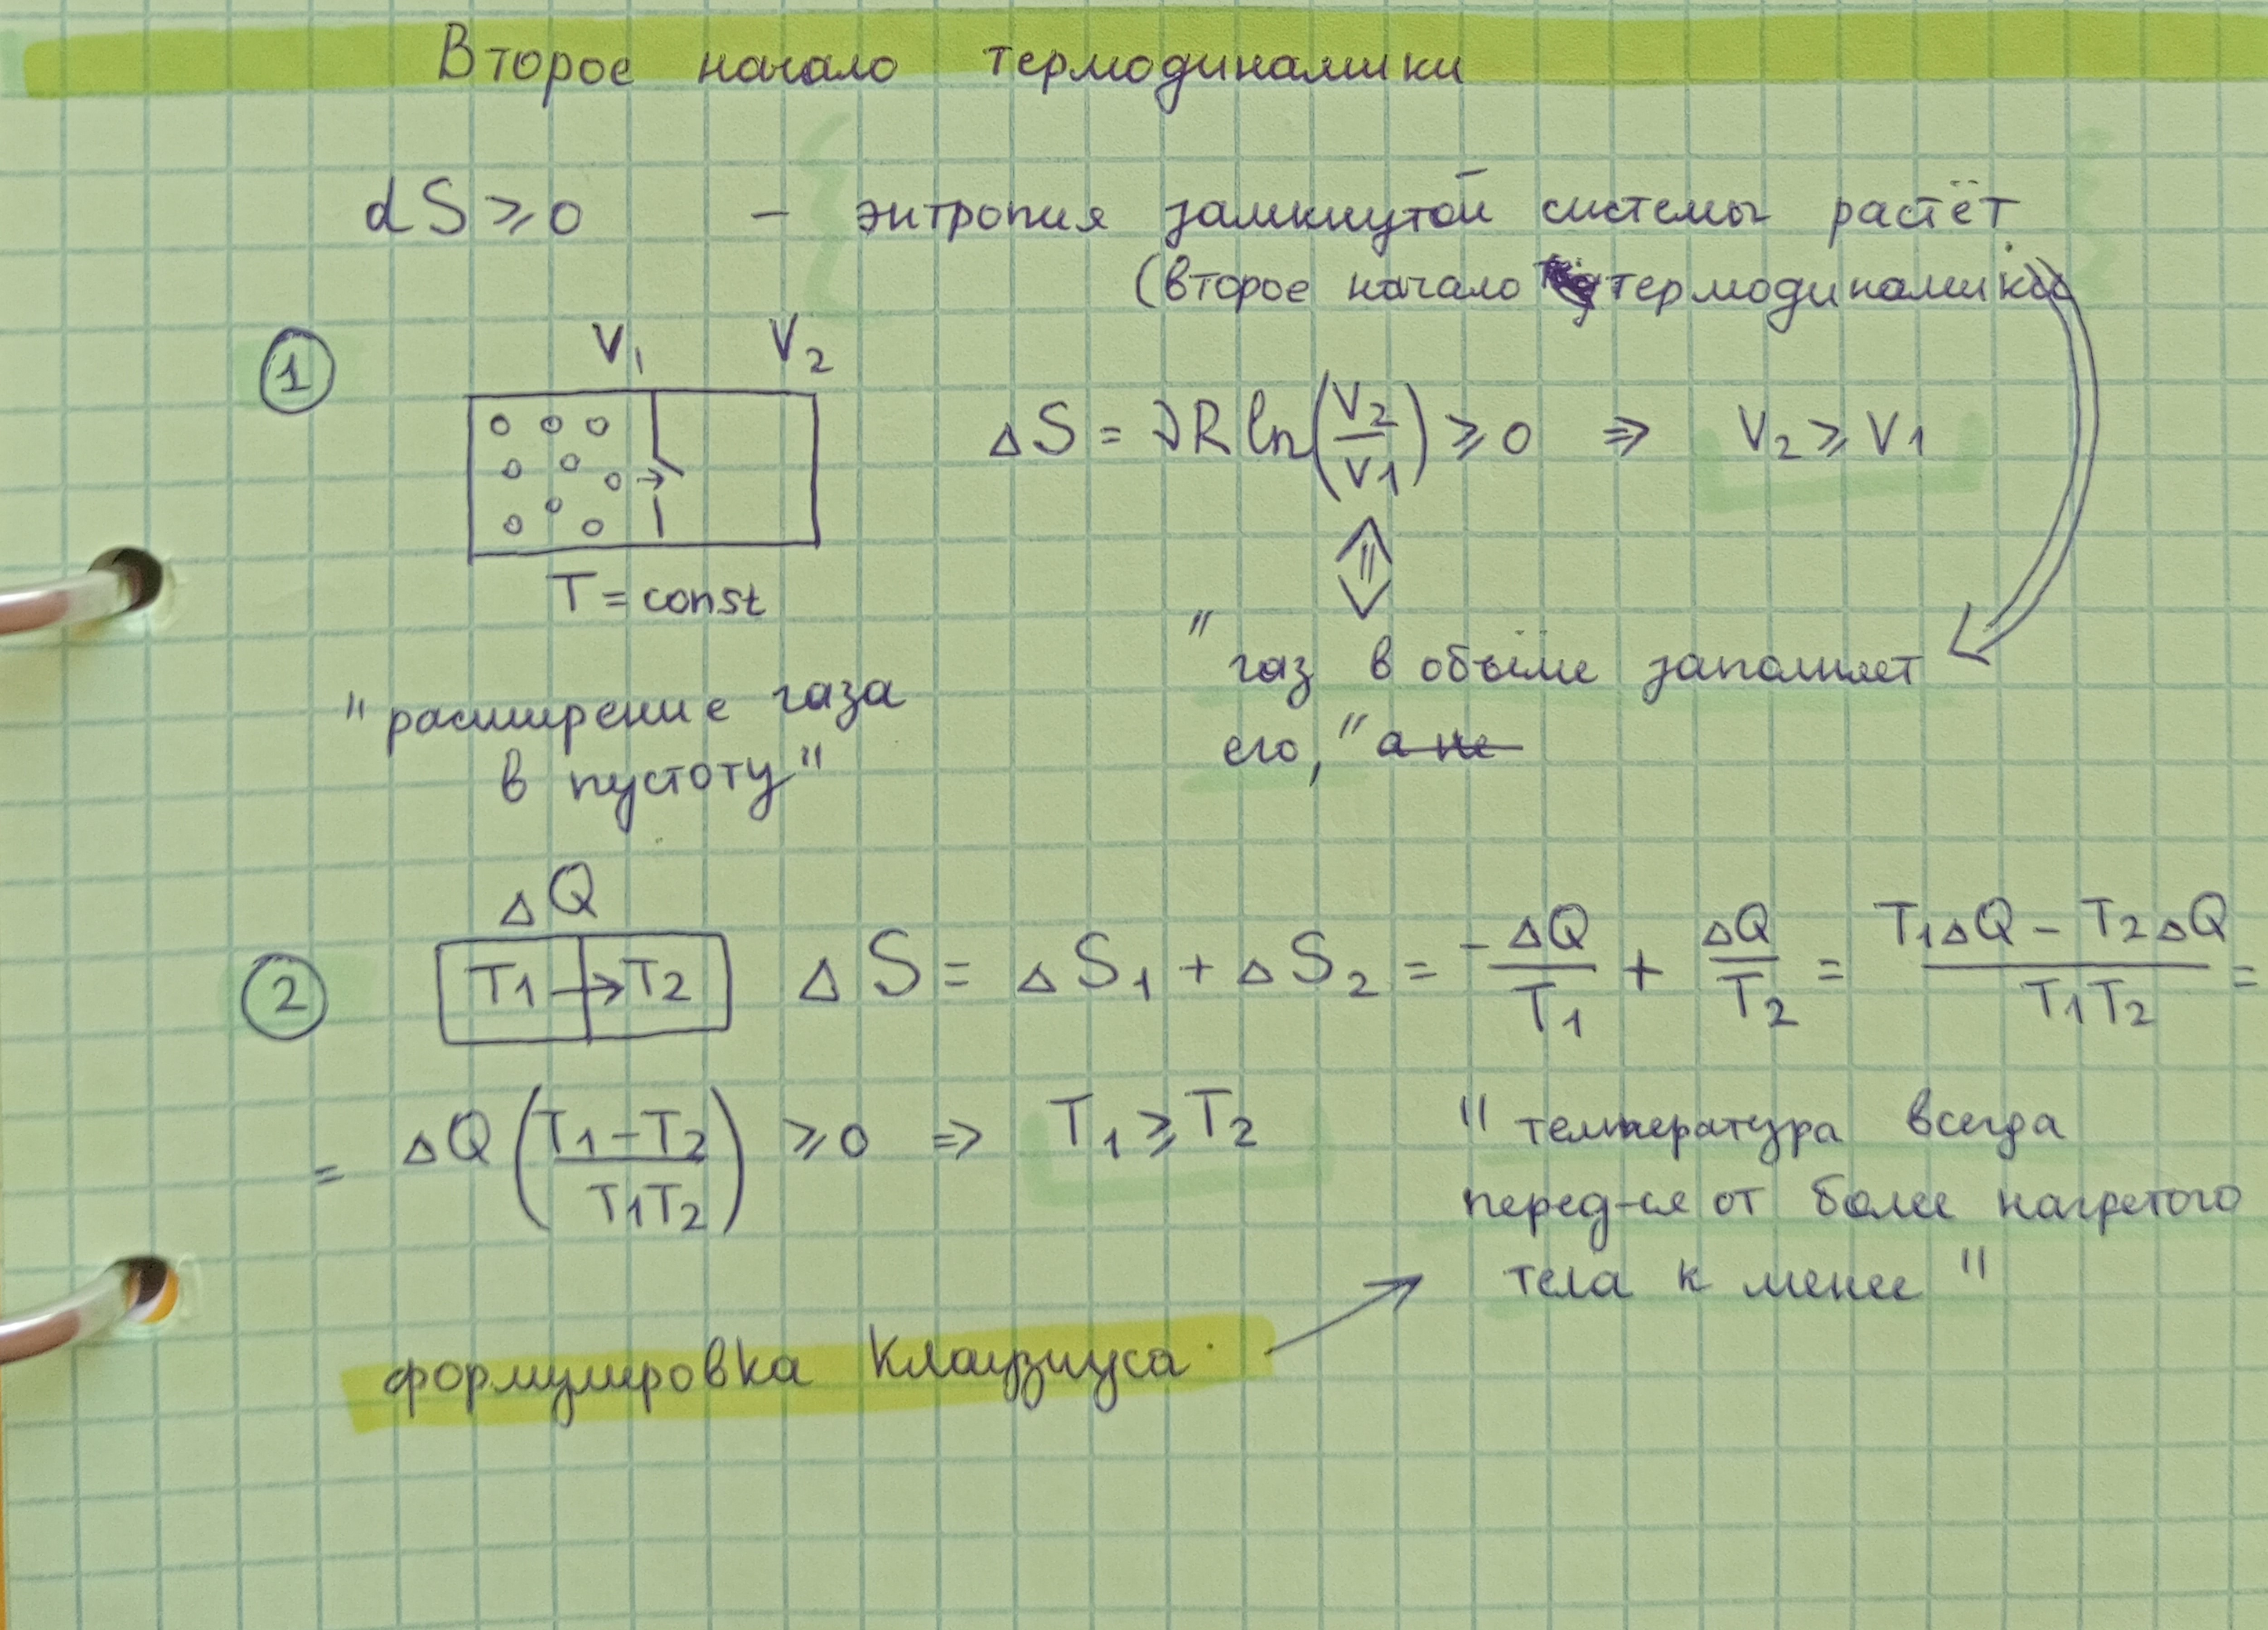 Второе начало термодинамики
dS ⩾ 0 — энтропия замкнутой системы растёт
(второе начало термодинамики
1
V₁ V₂
ΔS = νR ln(V₂/V₁) ⩾ 0 ⇒ V₂ ⩾ V₁
T = const
"газ в объёме заполняет
его," а не
"расширение газа
в пустоту"
2
ΔQ
T₁ → T₂
ΔS = ΔS₁ + ΔS₂ = -ΔQ/T₁ + ΔQ/T₂ = (T₁ΔQ - T₂ΔQ)/(T₁T₂) =
= ΔQ((T₁ - T₂)/(T₁T₂)) ⩾ 0 ⇒ T₁ ⩾ T₂
"температура всегда
перед-ся от более нагретого
тела к менее"
формулировка Клаузиуса